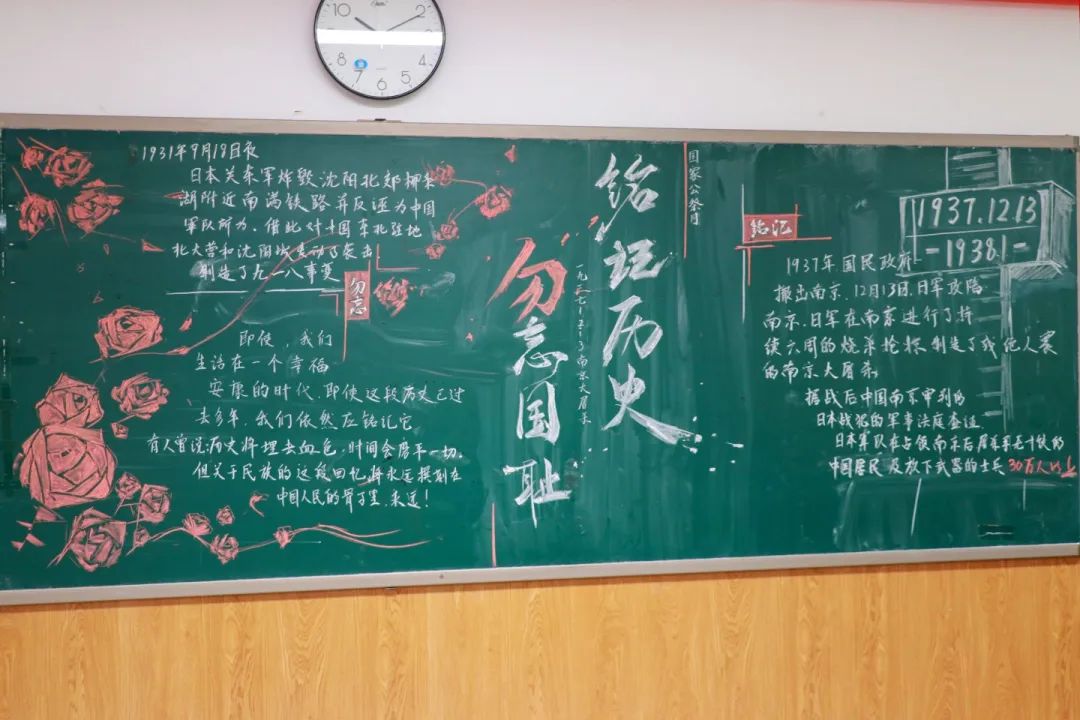 10
2
8
7
6
5
4
1931年9月18日夜
日本关东军炸毁沈阳北郊柳条
湖附近南满铁路并反诬为中国
军队所为,借此对中国东北驻地
北大营和沈阳城发动了袭击
制造了九一八事变
勿忘
即使,我们
生活在一个幸福
安康的时代,即使这段历史已过
去多年,我们依然应铭记它
有人曾说:历史将埋去血色,时间会磨平一切,
但关于民族的这段回忆,将永远撰刻在
中国人民的骨子里,永远!
勿忘国耻
一九三七·一二·一三南京大屠杀
铭记历史
国家公祭日
铭记
1937.12.13
-1938.1-
1937年,国民政府
搬出南京,12月13日,日军攻陷
南京,日军在南京进行了持
续六周的烧杀抢掠,制造了残绝人寰
的南京大屠杀
据战后中国南京审判的
日本战犯的军事法庭查证
日本军队在占领南京后屠杀手无寸铁的
中国居民及放下武器的士兵30万人以上